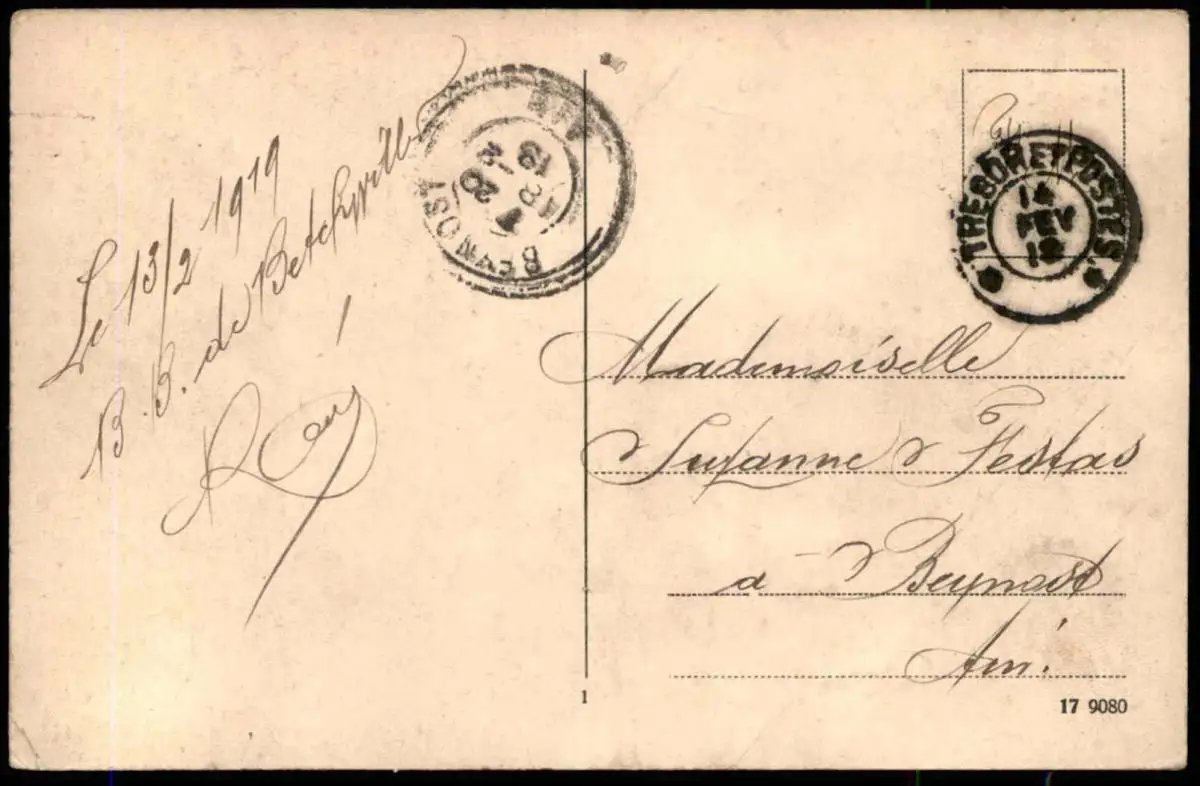 Le 13/2 1919
B. B. de Betchwill
BEYNOST
AIN
1 20
18 - 2
19
TRESOR ET POSTES
14
FEV
19
Mademoiselle
Suzanne Festas
à Beynost
Ain.
1
17 9080